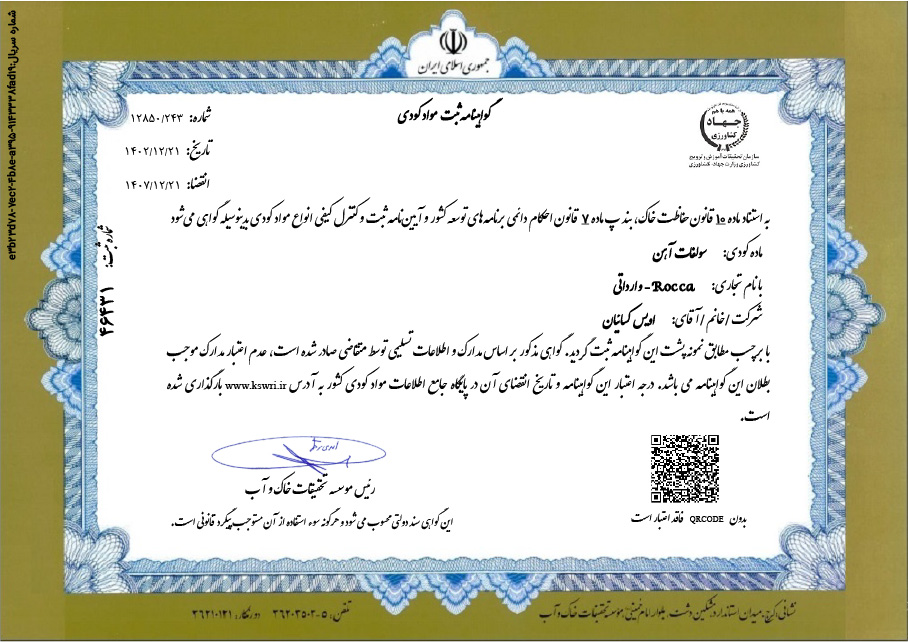 شماره سریال:
جمهوری اسلامی ایران
همه با هم
جهاد
کشاورزی
سازمان تحقیقات، آموزش و ترویج
کشاورزی وزارت جهاد کشاورزی
گواهینامه ثبت مواد کودی
شماره: ۱۲۸۵۰/۲۴۳
تاریخ: ۱۴۰۲/۱۲/۲۱
انقضا: ۱۴۰۷/۱۲/۲۱
شماره ثبت: ۴۶۴۳۱
به استناد ماده ۱۰ قانون حفاظت خاک، بند پ ماده ۷ قانون احکام دائمی برنامه های توسعه کشور و آیین نامه ثبت و کنترل کیفی انواع مواد کودی بدینوسیله گواهی می شود
ماده کودی: سولفات آهن
با نام تجاری: Rocca - وارداتی
شرکت / خانم / آقای: اویس کیانیان
با برچسب مطابق نمونه پشت این گواهینامه ثبت گردید. گواهی مذکور بر اساس مدارک و اطلاعات تسلیمی توسط متقاضی صادر شده است، عدم اعتبار مدارک موجب
بطلان این گواهینامه می باشد. درجه اعتبار این گواهینامه و تاریخ انقضای آن در پایگاه جامع اطلاعات مواد کودی کشور به آدرس www.kswri.ir بارگذاری شده
است.
رئیس موسسه تحقیقات خاک و آب
بدون QRCODE فاقد اعتبار است
این گواهی سند دولتی محسوب می شود و هرگونه سوء استفاده از آن مستوجب پیگرد قانونی است.
نشانی: کرج، میدان استاندارد، مشکین دشت، بلوار امام خمینی، مؤسسه تحقیقات خاک و آب
تلفن: ۵-۳۶۲۰۳۵۰۳ دورنگار: ۳۶۲۱۰۱۲۱